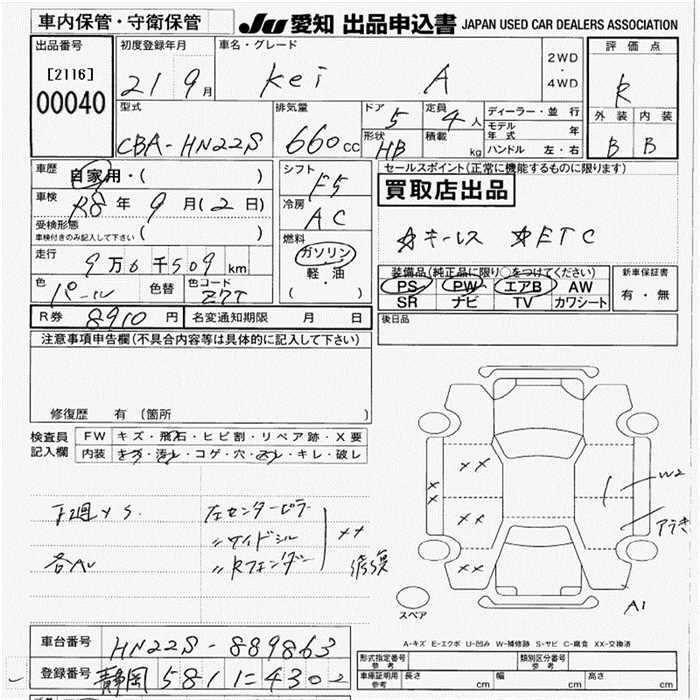 車内保管・守衛保管
JU 愛知 出品申込書 JAPAN USED CAR DEALERS ASSOCIATION
出品番号
[2116]
00040
初度登録年月
21 9月
車名・グレード
Kei A
2WD
・
4WD
評価点
R
外装 内装
B B
型式
CBA-HN22S
排気量
660cc
ドア
5
定員
4人
形状
HB
積載
kg
ディーラー・並行
モデル年式 年
ハンドル 左・右
車歴
自家用・( )
車検
R8年 9月(2日)
受検形態
車検付きのみ記入して下さい ( )
走行
9万6千509km
色
パール
色替
色コード
Z7T
シフト
F5
冷房
AC
燃料
ガソリン
軽・油
( )
セールスポイント(正常に機能するものに限ります)
買取店出品
☆キーレス ☆ETC
装備品(純正品に限り○をつけてください)
PS PW エアB AW
SR ナビ TV カワシート
新車保証書
有・無
R券 8910円
名変通知期限 月 日
後日品
注意事項申告欄(不具合内容等は具体的に記入して下さい)
修復歴 有(箇所
検査員
記入欄
FW キズ・飛石・ヒビ割・リペア跡・X要
内装 キズ・汚れ・コゲ・穴・スレ・キレ・破レ
下廻りS.
各AU
左センターピラー
〃サイドシル
〃Rフェンダー
XX
修復
XX
X
X
XX
XX
W2
アラキ
A1
スペア
A-キズ E-エクボ U-凹み W-補修跡 S-サビ C-腐食 XX-交換済
車台番号 HN22S-889863
登録番号 静岡 581 に 4302
形式指定番号
参考
類別区分番号
参考
車庫証明用
参考
長さ cm
幅 cm
高さ cm